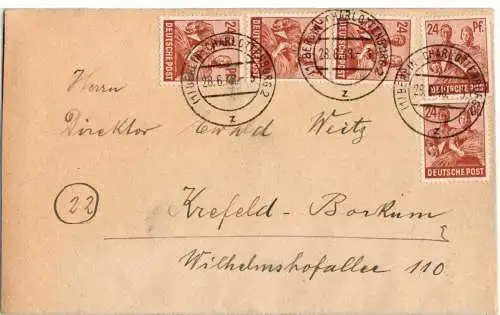 24
DEUTSCHE POST
24
24 PF.
DEUTSCHE POST
24
DEUTSCHE POST
(1) BERLIN-CHARLOTTENBURG 2
28.6.48
z
(1) BERLIN-CHARLOTTENBURG 2
28.6.48
z
(1) BERLIN-CHARLOTTENBURG 2
28.6.48
z
Herrn
Direktor Ewald Weitz
22
Krefeld-Bockum
Wilhelmshofallee 110